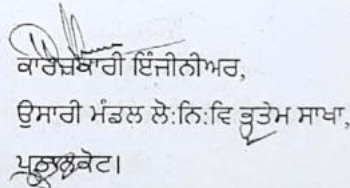 ਕਾਰਜਕਾਰੀ ਇੰਜੀਨੀਅਰ,
ਉਸਾਰੀ ਮੰਡਲ ਲੋ:ਨਿ:ਵਿ ਭਤੇਮ ਸਾਖਾ,